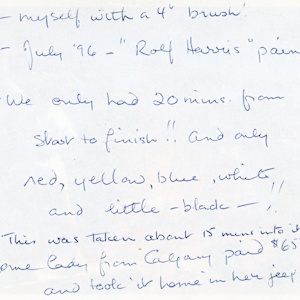 - myself with a 4" brush!
- July '96 - "Rolf Harris" pain
We only had 20 mins. from
start to finish!! and only
red, yellow, blue, white
and little - black - !!
This was taken about 15 mins into it
ome lady from Calgary paid $65
and took 'it' home in her jeep